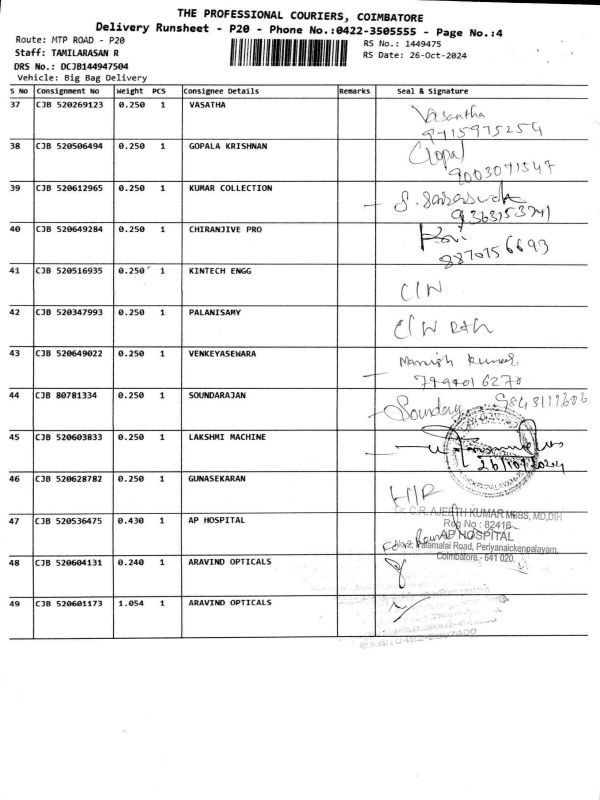 THE PROFESSIONAL COURIERS, COIMBATORE
Delivery Runsheet - P20 - Phone No.:0422-3505555 - Page No.:4
Route: MTP ROAD - P20
RS No.: 1449475
Staff: TAMILARASAN R
RS Date: 26-Oct-2024
DRS No.: DCJB144947504
Vehicle: Big Bag Delivery
S No Consignment No Weight PCS Consignee Details Remarks Seal & Signature
37 CJB 520269123 0.250 1 VASATHA Vasantha
9715975254
38 CJB 520506494 0.250 1 GOPALA KRISHNAN Gopal
9003071547
39 CJB 520612965 0.250 1 KUMAR COLLECTION
40 CJB 520649284 0.250 1 CHIRANJIVE PRO
8870756693
41 CJB 520516935 0.250 1 KINTECH ENGG C/N
42 CJB 520347993 0.250 1 PALANISAMY
43 CJB 520649022 0.250 1 VENKEYASEWARA Manish Kumar
44 CJB 80781334 0.250 1 SOUNDARAJAN
45 CJB 520603833 0.250 1 LAKSHMI MACHINE
26/10/2024
46 CJB 520628782 0.250 1 GUNASEKARAN
Dr. C.R. AJEETH KUMAR MBBS, MD,DIH
Reg No : 82416
47 CJB 520536475 0.430 1 AP HOSPITAL AP HOSPITAL
Palamalai Road, Periyanaickenpalayam,
Coimbatore - 641 020.
48 CJB 520604131 0.240 1 ARAVIND OPTICALS
49 CJB 520601173 1.054 1 ARAVIND OPTICALS